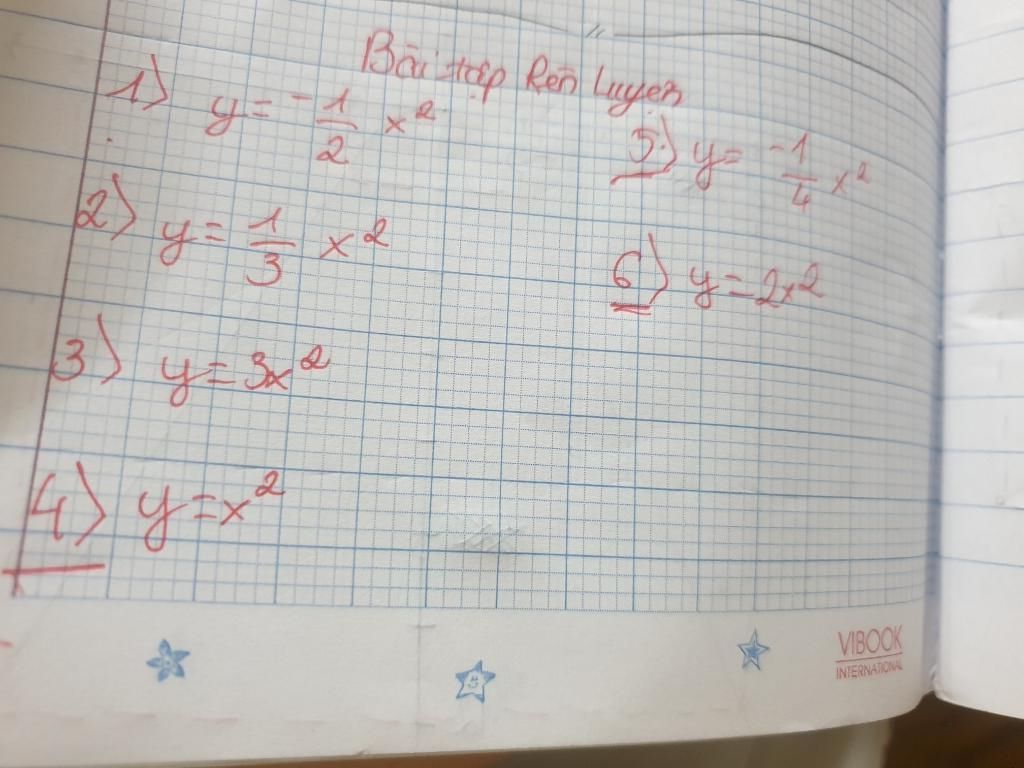 Bài tập Rèn Luyện
1) y = -1/2 x²
2) y = 1/3 x²
3) y = 3x²
4) y = x²
5) y = -1/4 x²
6) y = 2x²
VIBOOK
INTERNATIONAL